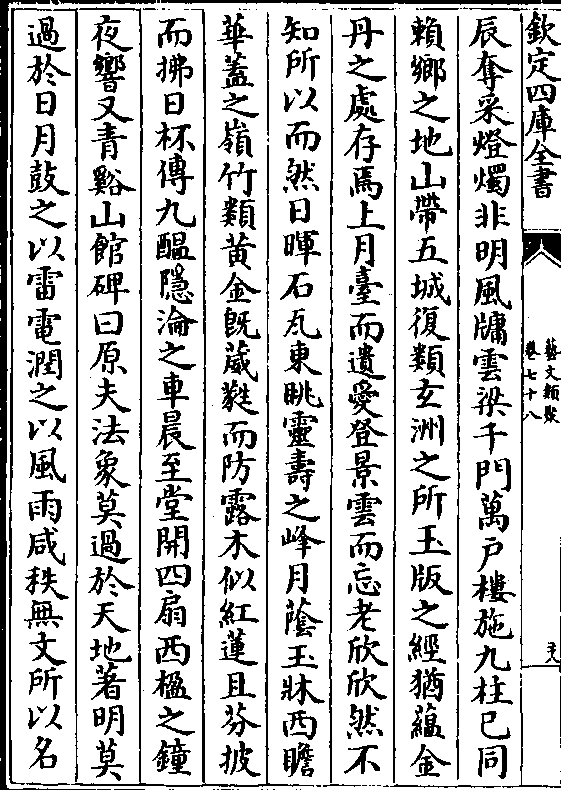 欽定四庫全書
藝文類聚
卷七十八
辰奪采燈燭非明風牗雲梁千門萬户樓施九柱已同
頼鄉之地山帶五城復類玄洲之所玉版之經猶蘊金
丹之處存焉上月臺而遺愛登景雲而忘老欣欣然不
知所以而然日暉石瓦東眺靈壽之峰月䕃玉牀西瞻
華蓋之嶺竹類黃金既葳蕤而防露木似紅蓮且芬披
而拂日杯傳九醞隱淪之車晨至堂開四扇西楹之鐘
夜響又青谿山館碑曰原夫法象莫過於天地著明莫
過於日月鼓之以雷電潤之以風雨咸秩無文所以名